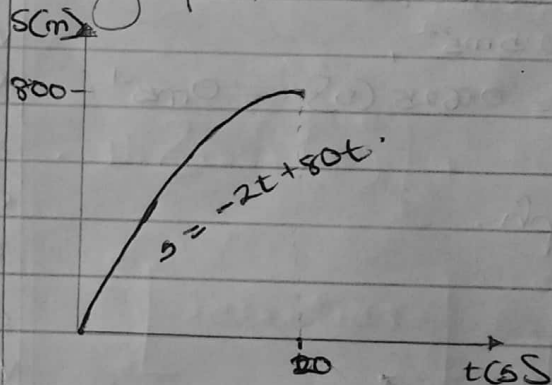 S(m)
800
s = -2t+80t.
20
t(s